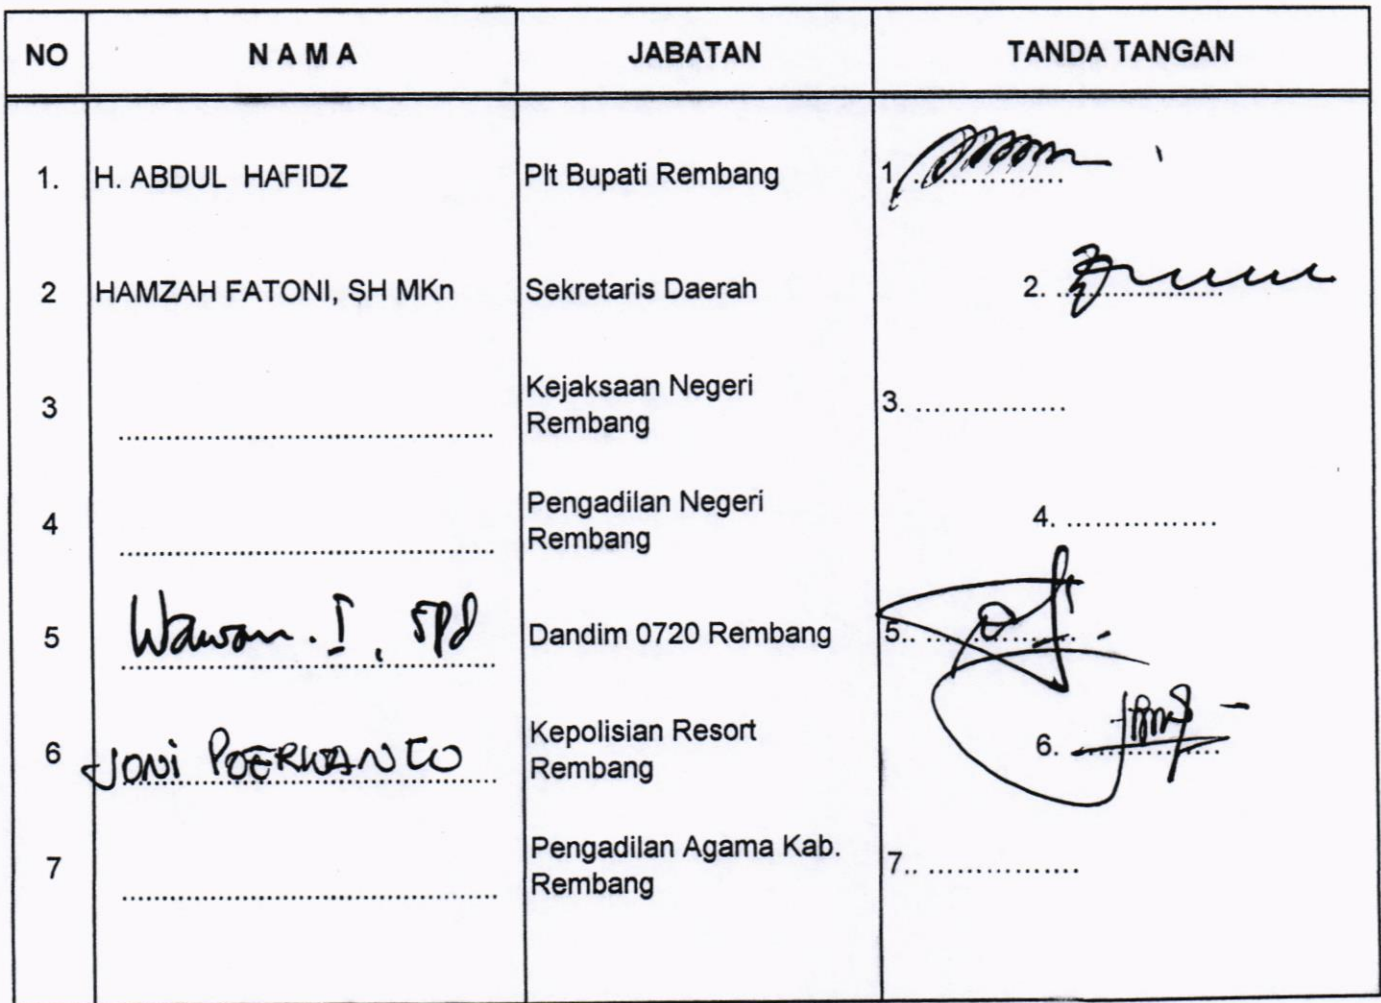 NO N A M A JABATAN TANDA TANGAN
1. H. ABDUL HAFIDZ Plt Bupati Rembang 1. ...............
2 HAMZAH FATONI, SH MKn Sekretaris Daerah 2. ...............
3 ............................................... Kejaksaan Negeri
Rembang 3. ...............
4 ............................................... Pengadilan Negeri
Rembang 4. ...............
5 Wawan. I, SPd Dandim 0720 Rembang 5.. ...............
6 JONI POERWANTO Kepolisian Resort
Rembang 6. ...............
7 ............................................... Pengadilan Agama Kab.
Rembang 7.. ...............